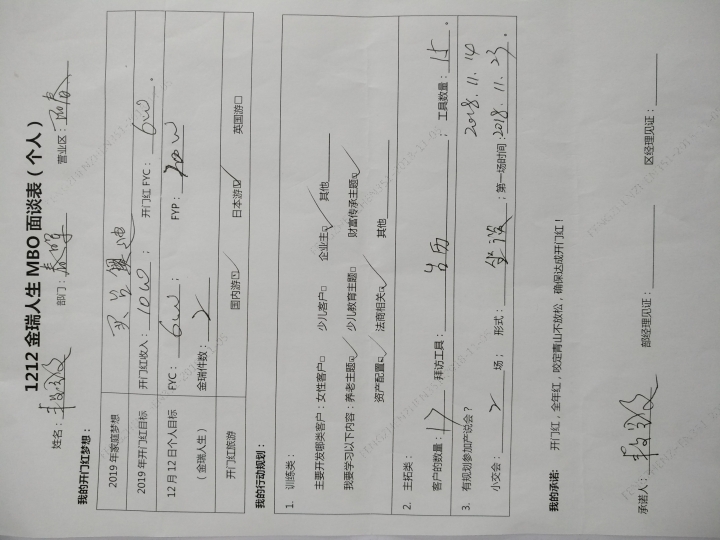 1212 金瑞人生 MBO 面谈表（个人）
姓名： 部门： 营业区：
我的开门红梦想：
2019 年家庭梦想
2019 年开门红目标 开门红收入：10W； 开门红 FYC：6W。
12 月 12 日个人目标（金瑞人生） FYC：6W； FYP：20W
金瑞件数：2
开门红旅游 国内游☑ 日本游☑ 英国游□
我的行动规划：
1. 训练类：
主要开发哪类客户：女性客户□ 少儿客户□ 企业主☑ 其他
我要学习以下内容：养老主题☑ 少儿教育主题□ 财富传承主题☑
资产配置☑ 法商相关☑ 其他
2. 主拓类：
客户的数量：17 拜访工具：台历； 工具数量：15。
3. 有规划参加产说会？ 2018.11.14
小交会：2 场； 形式： ；第一场时间：2018.11.23。
我的承诺： 开门红，全年红，咬定青山不放松，确保达成开门红！
承诺人： 部经理见证： 区经理见证：